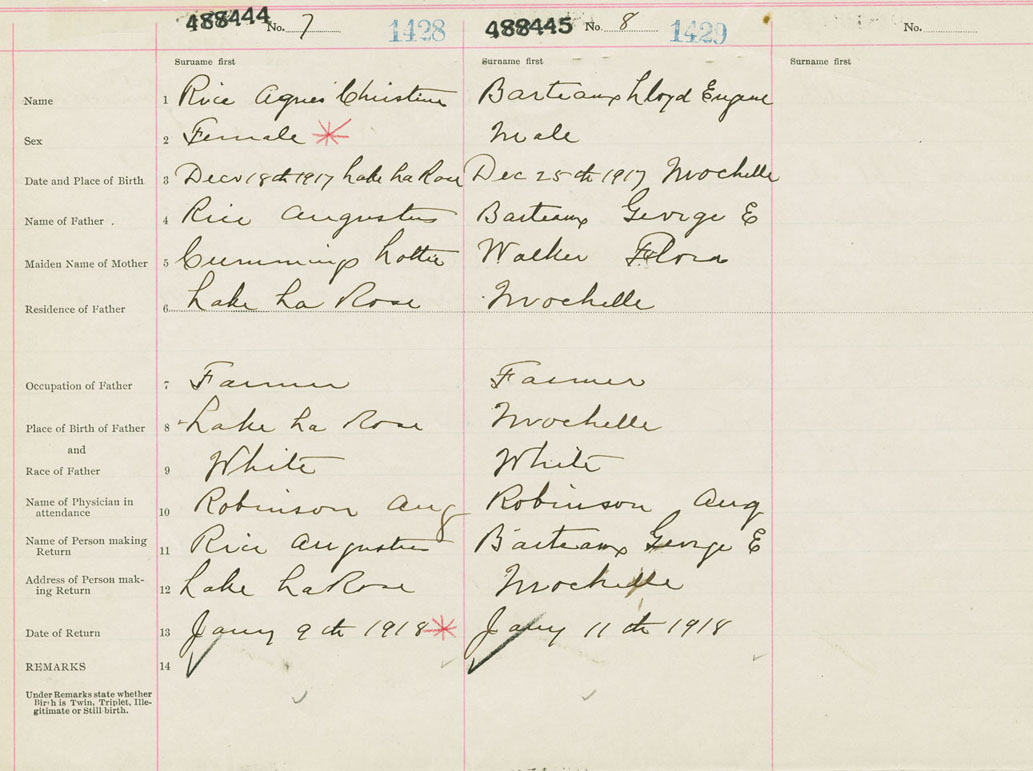 488444 No. 7 1428 488445 No. 8 1429 No.
Surname first Surname first Surname first
Name 1 Rice Agnes Christine Barteaux Lloyd Eugene
Sex 2 Female Male
Date and Place of Birth 3 Dec 18th 1917 Lake La Rose Dec 25th 1917 Mochelle
Name of Father . 4 Rice Augustus Barteaux George E
Maiden Name of Mother 5 Cummings Lottie Walker Flora
Residence of Father 6 Lake La Rose Mochelle
Occupation of Father 7 Farmer Farmer
Place of Birth of Father 8 Lake La Rose Mochelle
and
Race of Father 9 White White
Name of Physician in
attendance 10 Robinson Aug Robinson Aug
Name of Person making
Return 11 Rice Augustus Barteaux George E
Address of Person mak-
ing Return 12 Lake LaRose Mochelle
Date of Return 13 Jany 9th 1918 Jany 11th 1918
REMARKS 14
Under Remarks state whether
Birth is Twin, Triplet, Ille-
gitimate or Still-birth.